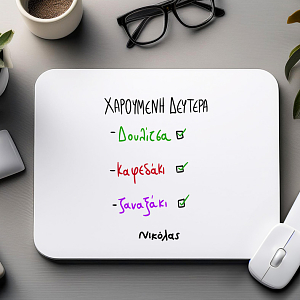 ΧΑΡΟΥΜΕΝΗ ΔΕΥΤΕΡΑ
- Δουλίτσα
- Καφεδάκι
- ζαναξάκι
Νικόλας